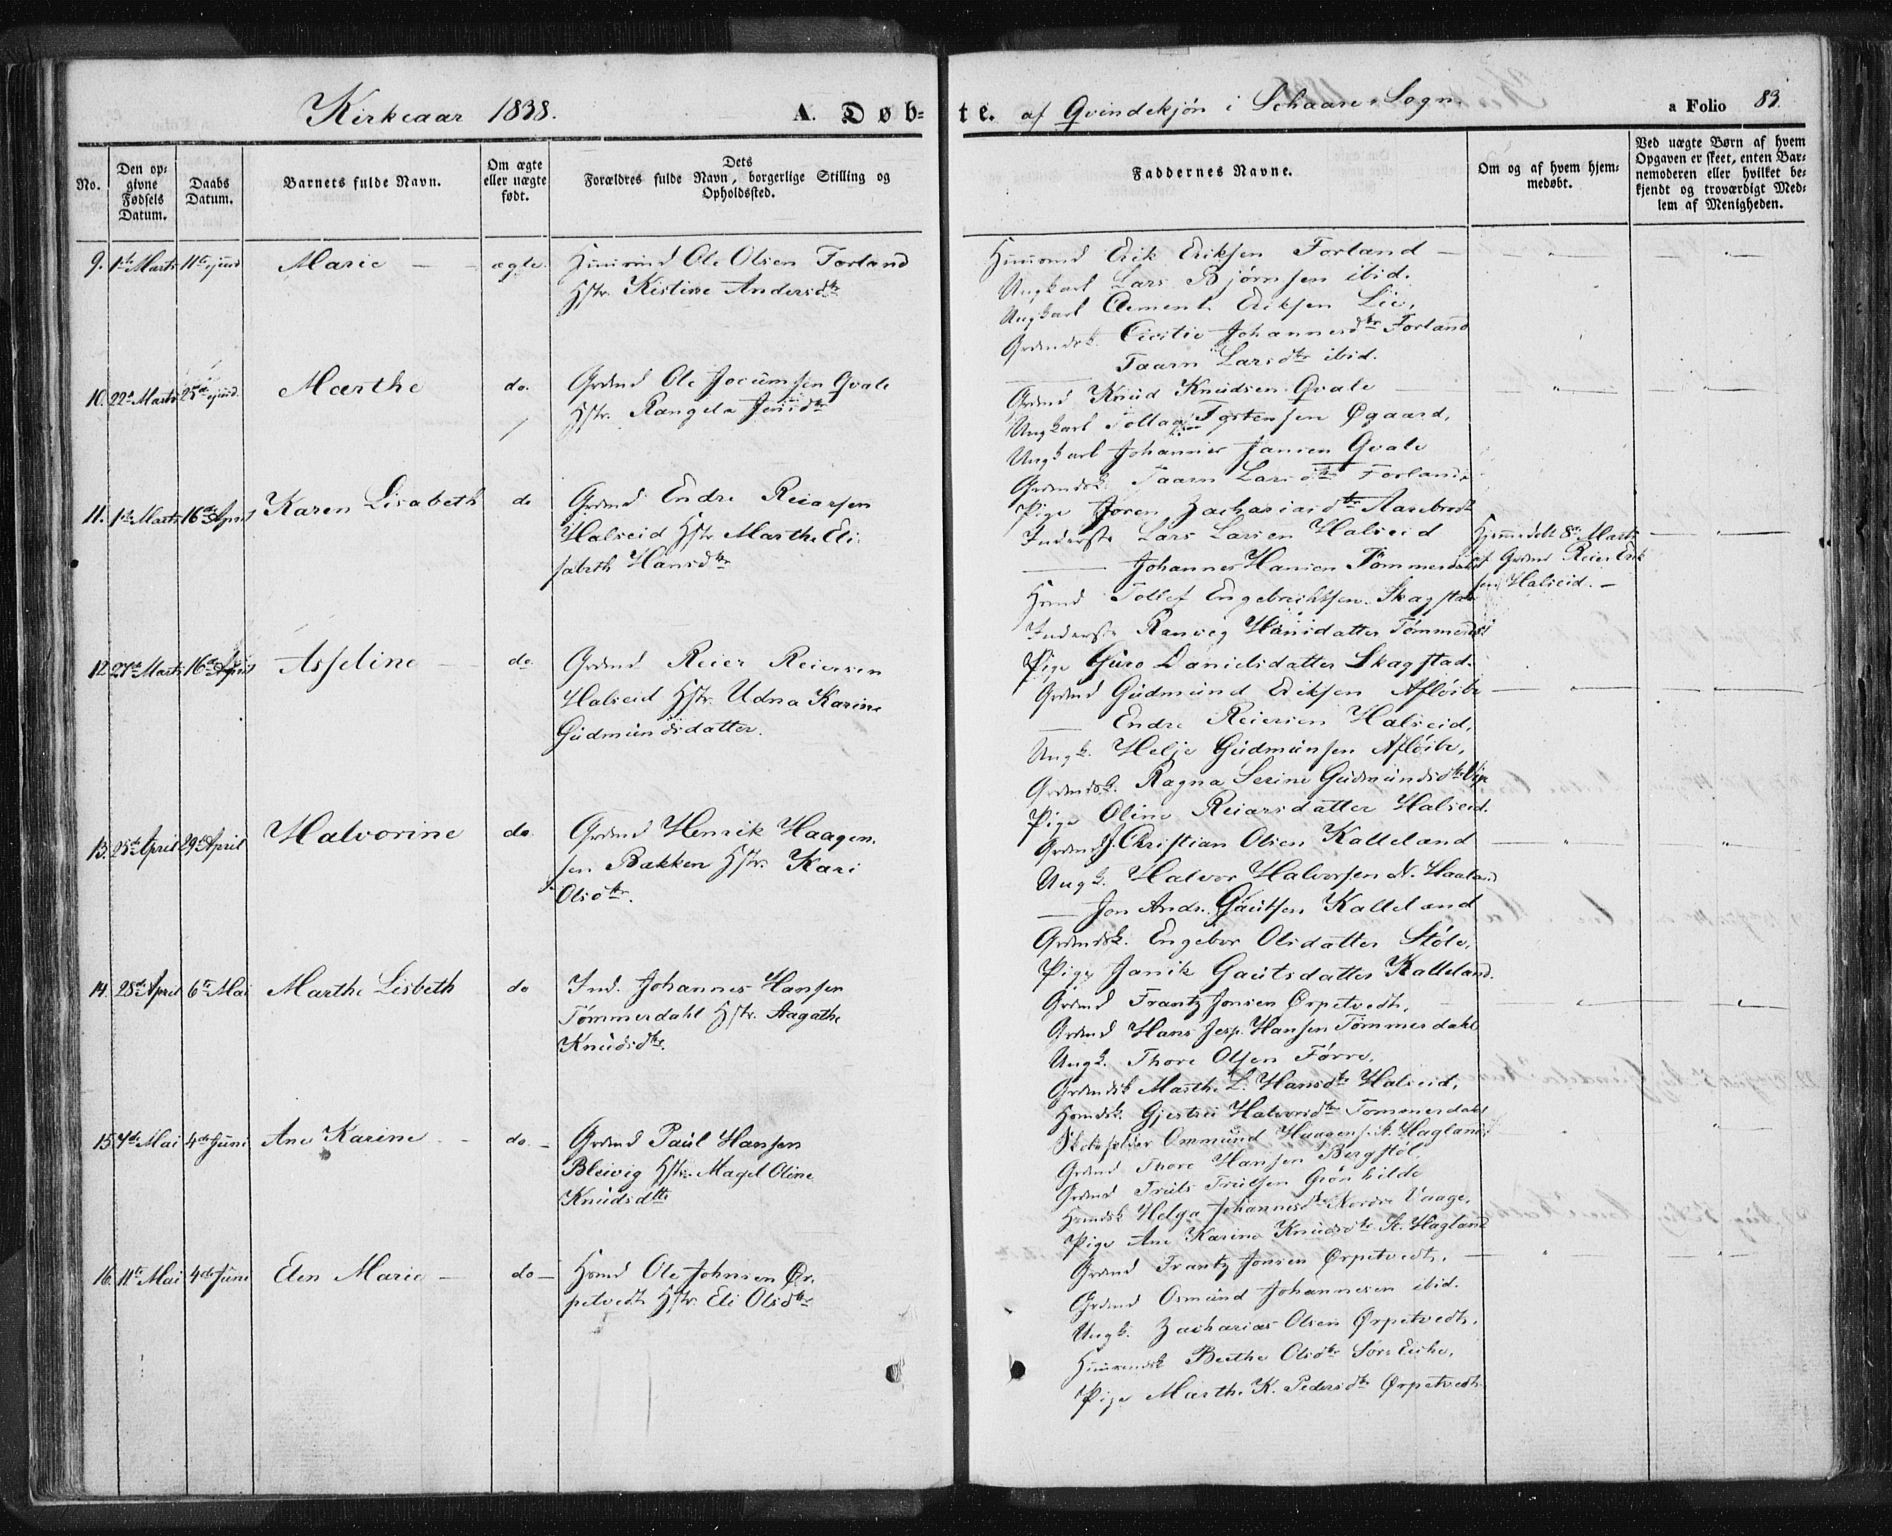 Kirkeaar 1838. A. Døb-
te. af Qvindekjøn i Schaare Sogn. a Folio 83.
No.
Den op-
givne
Fødsels
Datum.
Daabs
Datum.
Barnets fulde Navn.
Om ægte
eller uægte
født.
Dets
Forældres fulde Navn, borgerlige Stilling og
Opholdssted.
Faddernes Navne.
Om og af hvem hjem-
medøbt.
Ved uægte Børn af hvem
Opgaven er skeet, enten Bar-
nemoderen eller hvilket be-
kjendt og troværdigt Med-
lem af Menigheden.
9. 1te Marts 11te ejusd Marie — ægte Huusmd Ole Olsen Forland
Hstr. Kistine Andersdtr
Huusmd Erik Eriksen Forland —
Ungkarl Lars Bjørnsen ibid.
Ungkarl Clement Eriksen Lie,
Grdmdsk. Johannesdtr Forland
Taarn Larsdtr ibid.
10. 22de Marts 25de ejusd. Marthe do. Grdmd Ole Jocumsen Qvale
Hstr. Rangela Jensdtr
Grdmd Knud Knudsen Qvale
Ungkarl Tostensen Øgaard,
Ungkarl Johannes Jansen Qvale
Grdmdsk. Taarn Larsdtr Forland,
Pige Joren Zachariasdtr Aarebrodt
11. 1te Marts 16de April Karen Lisabeth do Grdmd Endre Reiarsen
Halseid Hstr Marthe Eli-
sabeth Hansdtr
Inderste Lars Larsen Halseid
— Johannes Hansen Tømmerdahl
Hmd Tollef Engebrichtsen Skagstad
Inderste Ranveg Hansdatter Tømmerdl
Pige Guro Danielsdatter Skagstad.
Hjemmedøbt 8de Marts
af Grdmd Reier Erik
sen Halseid. —
12. 27de Marts 16de April Asseline — do. Grdmd Reier Reiersen
Halseid Hstr. Udna Karine
Gudmundsdatter.
Grdmd Gudmund Eriksen Afløibe
— Endre Reiersen Halseid,
Ungk. Helje Gudmunsen Afløibe,
Grdmdsk. Ragna Serine Gudmundsdtr
Pige Oline Reiarsdatter Halseid.
13. 25de April 29de April Halvorine do. Grdmd Henrik Haagen-
sen Bakken Hstr. Kari
Olsdtr.
Grdmd J. Christian Olsen Kalleland
Ungk. Halvor Halvorsen N. Haaland
— Jon Andr. Gautsen Kalleland
Grdmdsk. Engebor Olsdatter Støle,
Pige Janik Gautsdatter Kalleland.
14. 28de April 6te Mai Marthe Lisbeth do Ind. Johannes Hansen
Tømmerdahl Hstr. Aagathe
Knudsdtr.
Grdmd Frantz Jonsen Ørpetvedt,
Grdmd Hans Jesp. Hansen Tømmerdahl
Ungk. Thore Olsen Førre,
Grdmdsk Marthe L. Hansdtr Halseid,
Hsmdsk. Gjertrü Halvorsdtr Tømmerdahl
15. 4de Mai 4de Juni Ane Karine — do. — Grdmd Paul Hansen
Bleivig Hstr. Magel Oline
Knudsdtr
Skoleholder Ommund Haagens. S. Hagland
Grdmd Thore Hansen Bergstøl,
Grdmd Truls Trulsen Grønhilde
Hsmdsk Helga Johannesdtr Nordre Vaage,
Pige Ane Karine Knudsdtr S. Hagland
16. 11te Mai 4de Juni Elen Marie — do — Hsmd Ole Johnsen Ør-
petvedt Hstr Eli Olsdtr
Grdmd Frantz Jonsen Ørpetvedt,
Grdmd Osmund Johannesen ibid.
Ungk. Zacharias Olsen Ørpetvedt,
Huusmdsk Berthe Olsdtr Søre Eiche,
Pige Marthe K. Pedersdtr Ørpetvedt